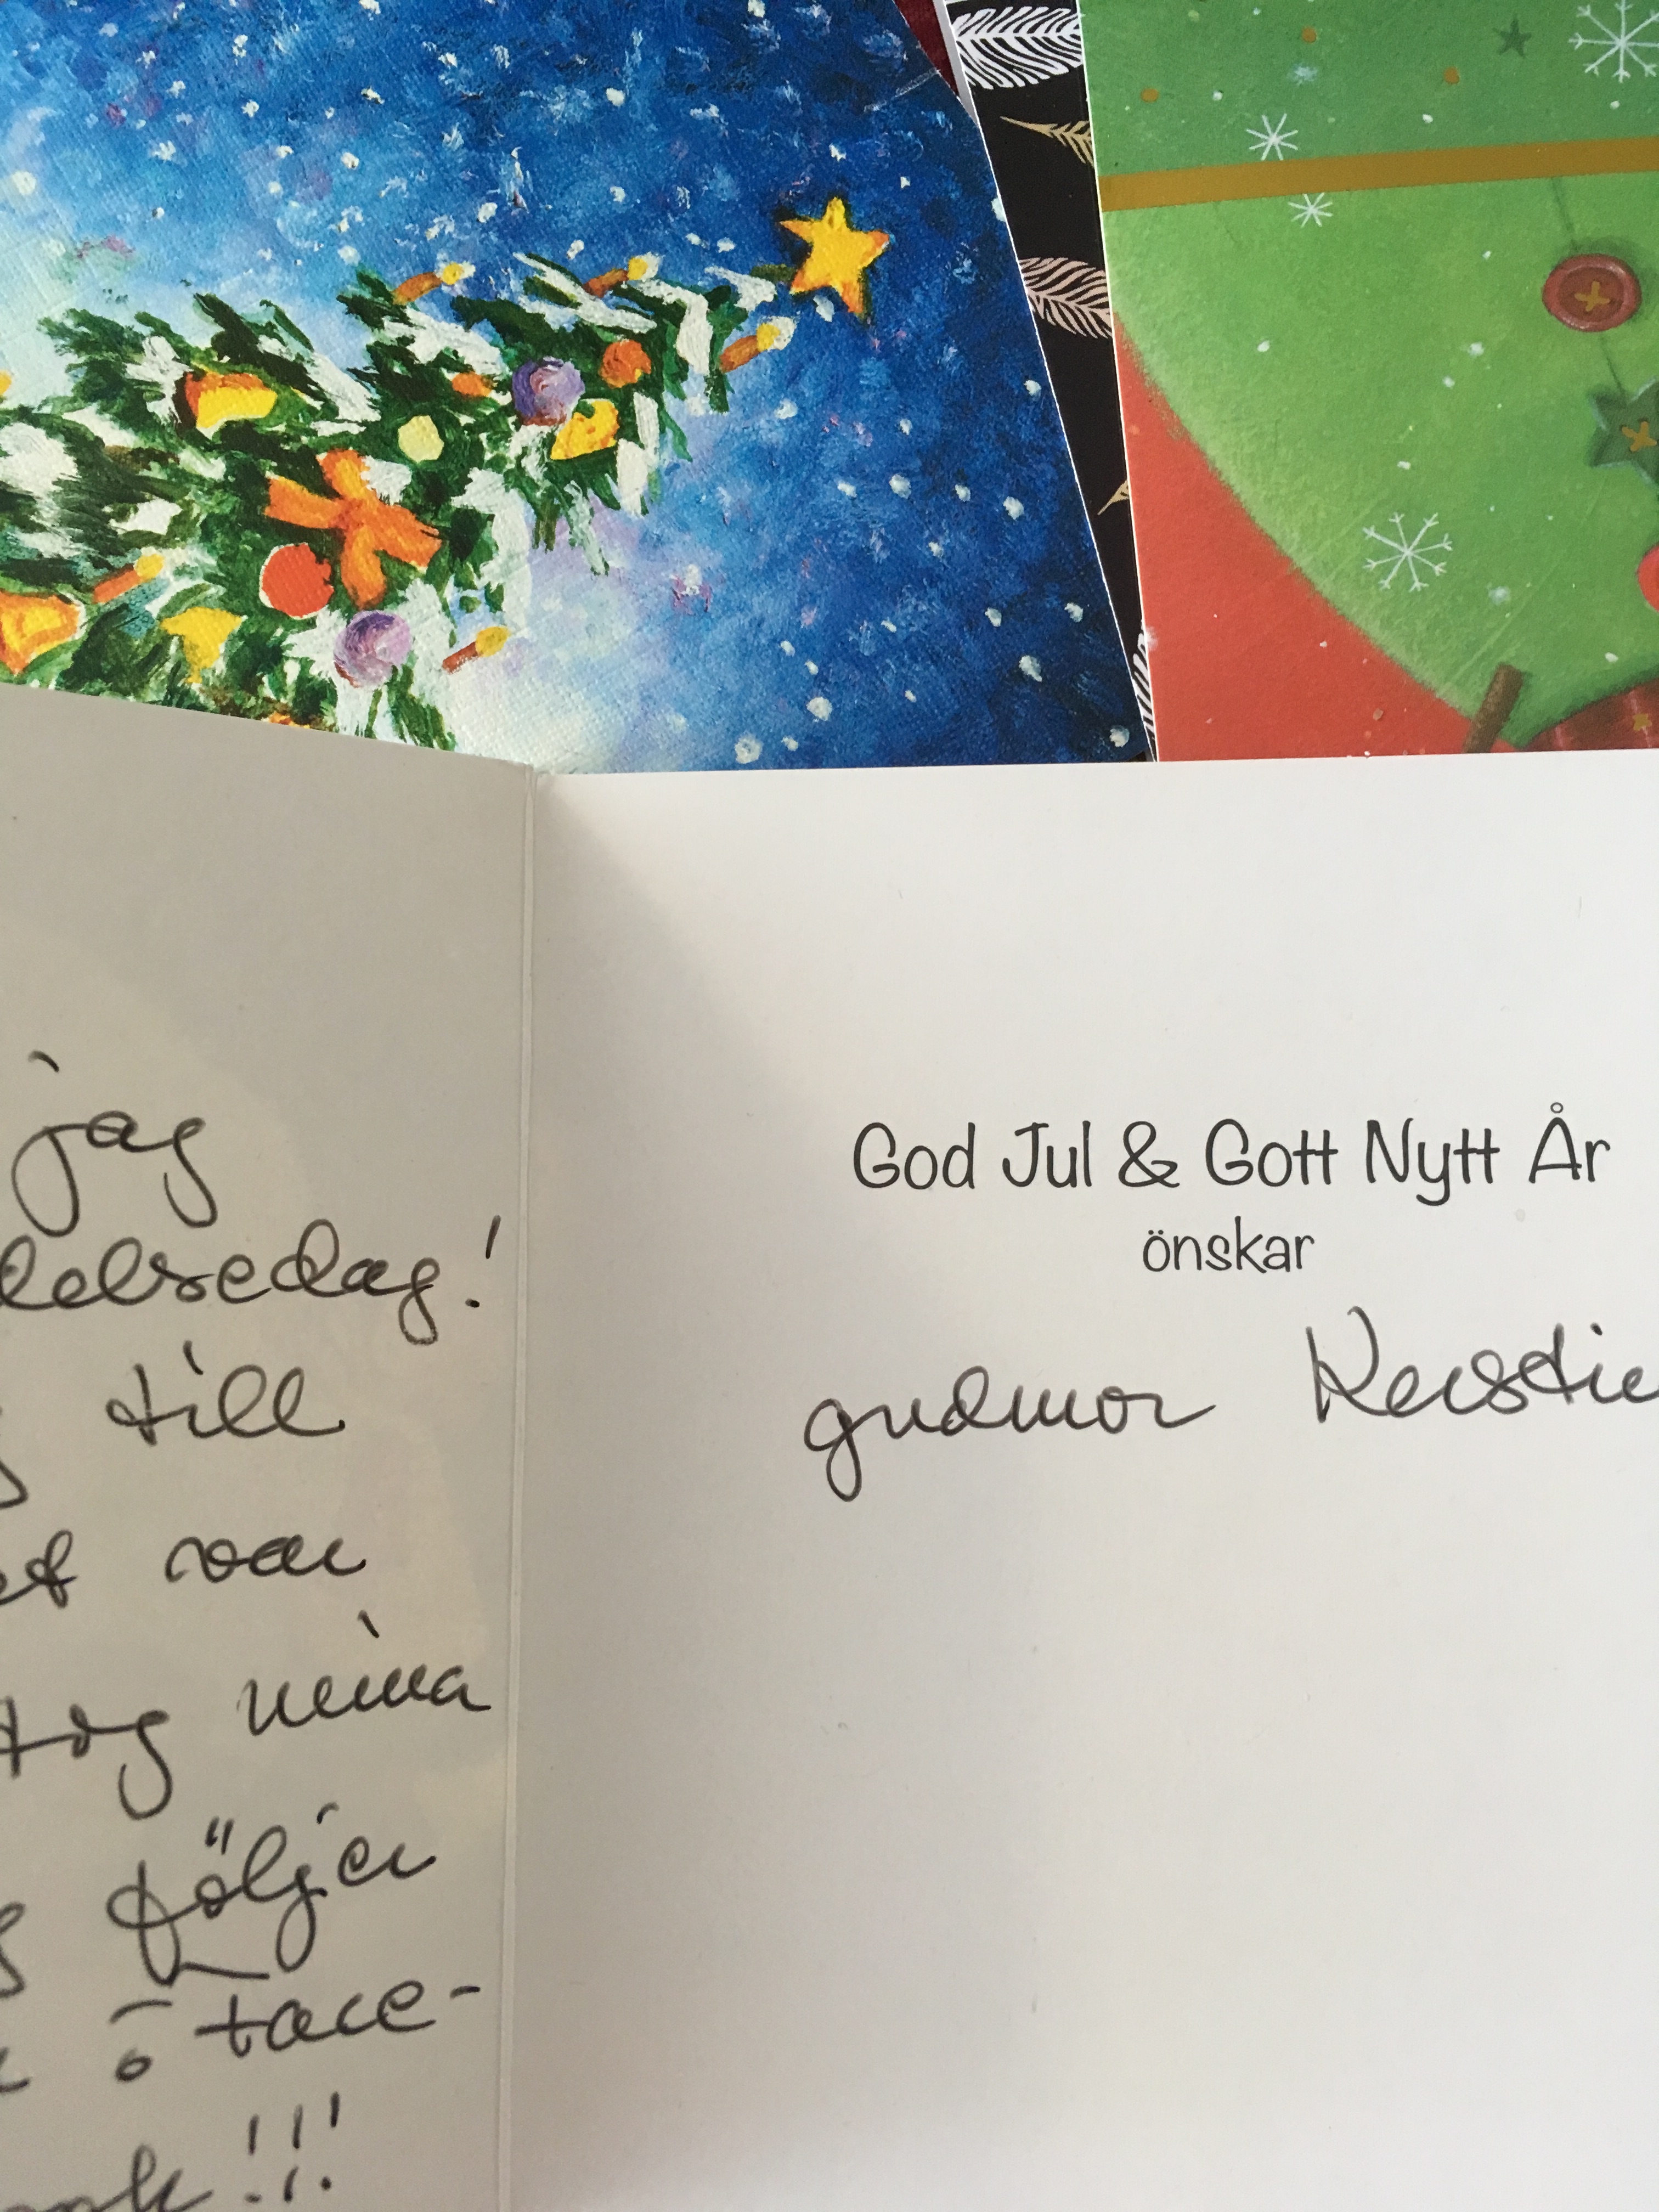 jag
delsedag!
till
var
tog mina
följer
o tace-
!!!
God Jul & Gott Nytt År
önskar
gudmor Kerstin